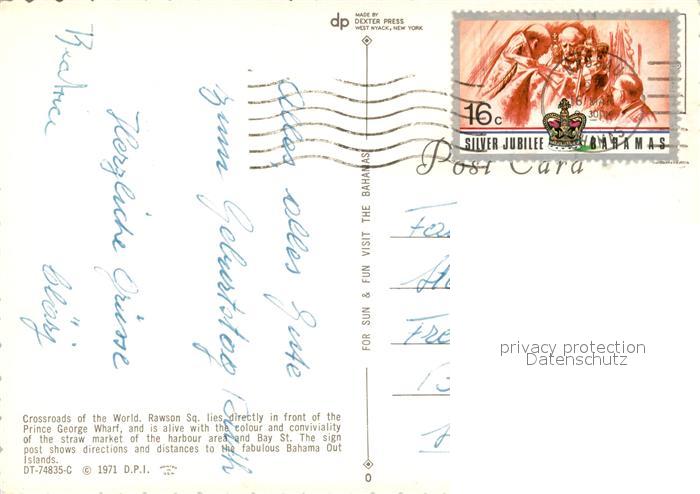 dp MADE BY
DEXTER PRESS
WEST NYACK, NEW YORK
16c
SILVER JUBILEE BAHAMAS
Post Card
Alles, alles Gute
zum Geburtstag Ruth
Herzliche Grüsse
Beatrice
FOR SUN & FUN VISIT THE BAHAMAS
Fre
privacy protection
Datenschutz
Crossroads of the World. Rawson Sq. lies directly in front of the
Prince George Wharf, and is alive with the colour and conviviality
of the straw market of the harbour area and Bay St. The sign
post shows directions and distances to the fabulous Bahama Out
Islands.
DT-74835-C © 1971 D.P.I.
0